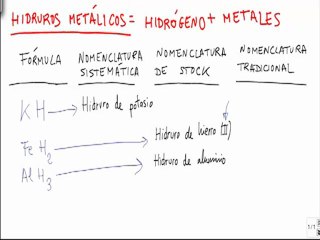 HIDRUROS METÁLICOS = HIDRÓGENO + METALES
FÓRMULA NOMENCLATURA SISTEMÁTICA NOMENCLATURA DE STOCK NOMENCLATURA TRADICIONAL
KH Hidruro de potasio
FeH2 Hidruro de hierro (II)
AlH3 Hidruro de aluminio
1/1